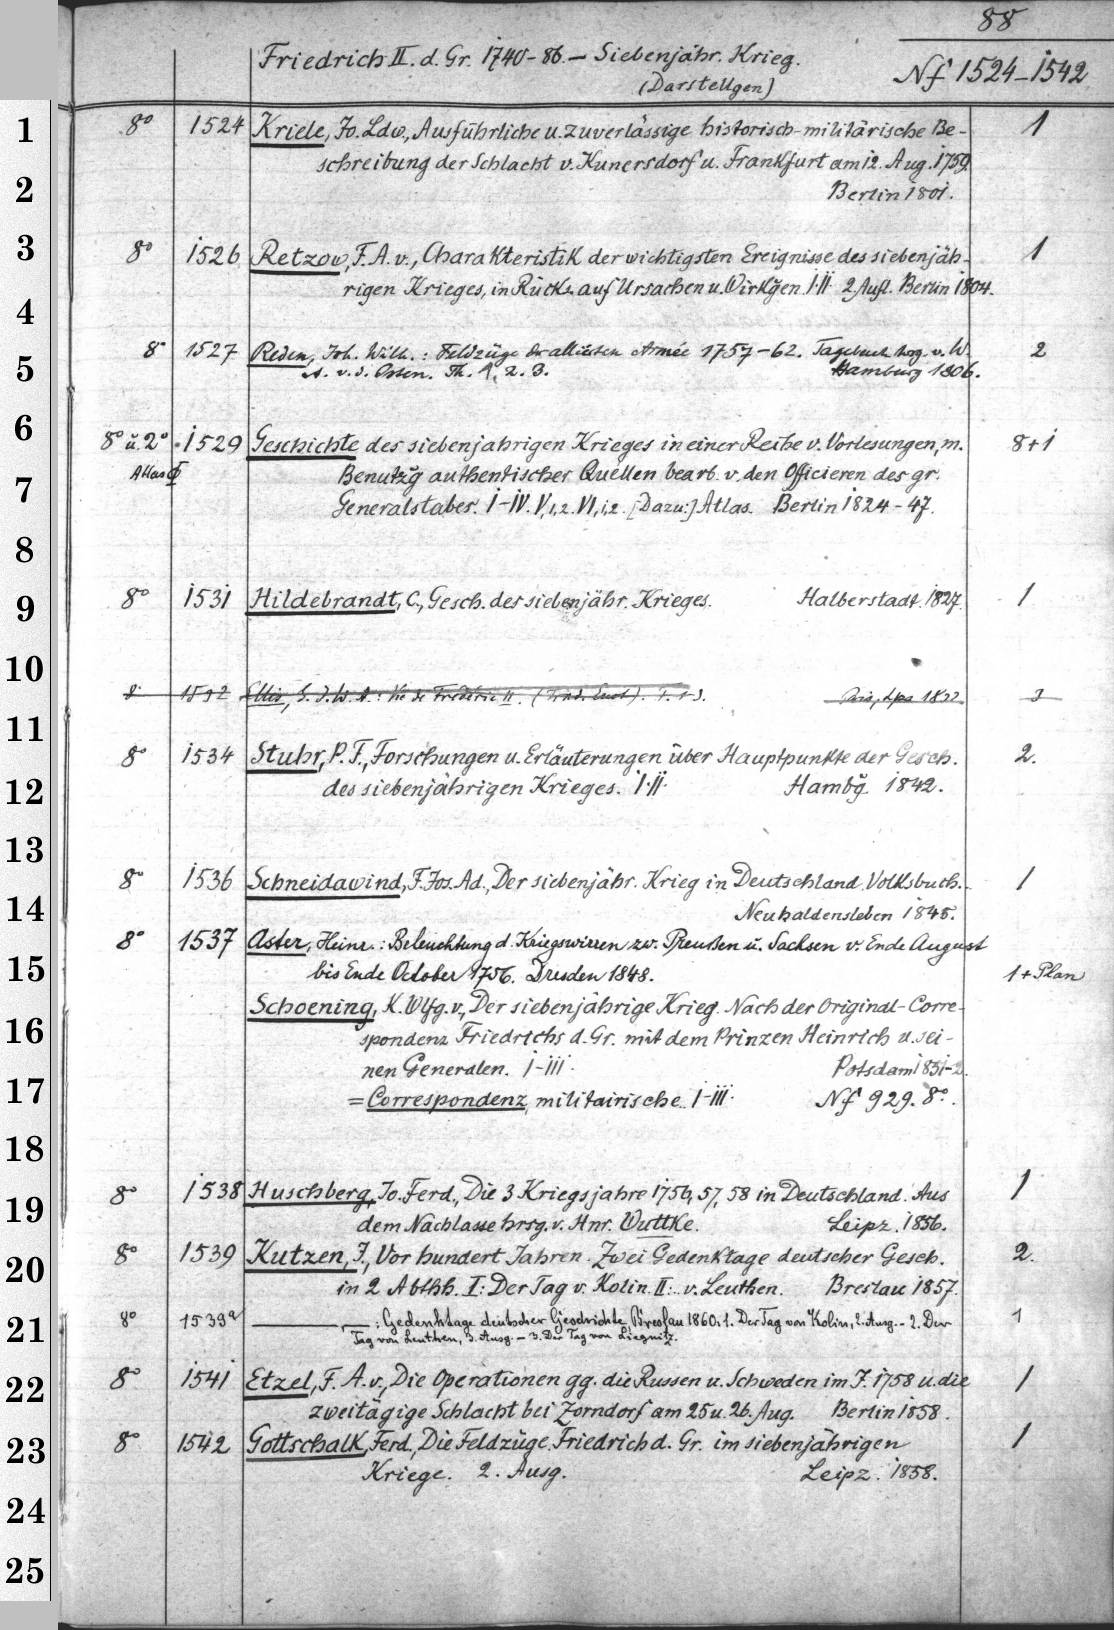 88
Friedrich II. d. Gr. 1740-86. – Siebenjähr. Krieg.
(Darstellgen)
Nf 1524-1542
1
8° 1524 Kriele, Jo. Ldw., Ausführliche u. zuverlässige historisch-militärische Be- 1
schreibung der Schlacht v. Kunersdorf u. Frankfurt am 12. Aug. 1759.
2
Berlin 1801.
3
8° 1526 Retzow, F. A. v., Charakteristik der wichtigsten Ereignisse des siebenjäh- 1
rigen Krieges, in Rücks. auf Ursachen u. Wirkg̃en I·II· 2 Aufl. Berlin 1804.
4
8° 1527 Reden, Joh. Wilh.: Feldzüge der alliirten Armée 1757-62. Tagebuch hrsg. v. W. 2
5
A. v. d. Osten. Th. 1, 2. 3. Hamburg 1806.
6
8° u. 2° 1529 Geschichte des siebenjahrigen Krieges in einer Reihe v. Vorlesungen, m. 8+1
Atlas Benutzg̃ authentischer Quellen bearb. v. den Officieren des gr.
7
Generalstabes. I-IV. V,1,2. VI,1,2. [Dazu:] Atlas. Berlin 1824-47.
8
9
8° 1531 Hildebrandt, C., Gesch. des siebenjähr. Krieges. Halberstadt. 1827. 1
10
8° 1532 Ellis, G. J. W. A.: Vie de Frédéric II. T. 1-3. 1832 3
11
8° 1534 Stuhr, P. F., Forschungen u. Erläuterungen über Hauptpunkte der Gesch. 2.
12
des siebenjährigen Krieges. I·II· Hambg̃ 1842.
13
8° 1536 Schneidawind, F. Jos. Ad., Der siebenjähr. Krieg in Deutschland. Volksbuch. 1
14
Neuhaldensleben 1845.
8° 1537 Aster, Heinr.: Beleuchtung d. Kriegswirren zw. Preußen u. Sachsen v. Ende August
15
bis Ende October 1756. Dresden 1848. 1+Plan
Schoening, K. Wlfg. v., Der siebenjährige Krieg. Nach der Original-Corre-
16
spondenz Friedrichs d. Gr. mit dem Prinzen Heinrich u. sei-
nen Generalen. I-III· Potsdam 1851-2.
17
= Correspondenz, militairische. I-III· Nf 929. 8°.
18
8° 1538 Huschberg, Jo. Ferd., Die 3 Kriegsjahre 1756, 57, 58 in Deutschland. Aus 1
19
dem Nachlasse hrsg. v. Hnr. Wuttke. Leipz. 1856.
8° 1539 Kutzen, J., Vor hundert Jahren. Zwei Gedenktage deutscher Gesch. 2.
20
in 2 Abthh. I: Der Tag v. Kolin. II: v. Leuthen. Breslau 1857.
21
8° 1539a ——, —: Gedenktage deutscher Geschichte. Breslau 1860. 1. Der Tag von Kolin, 2. Ausg. - 2. Der 1
Tag von Leuthen, 3. Ausg. - 3. Der Tag von Liegnitz.
22
8° 1541 Etzel, F. A. v., Die Operationen gg. die Russen u. Schweden im J. 1758 u. die 1
zweitägige Schlacht bei Zorndorf am 25 u. 26. Aug. Berlin 1858.
23
8° 1542 Gottschalk, Ferd., Die Feldzüge Friedrich d. Gr. im siebenjährigen 1
Kriege. 2. Ausg. Leipz. 1858.
24
25